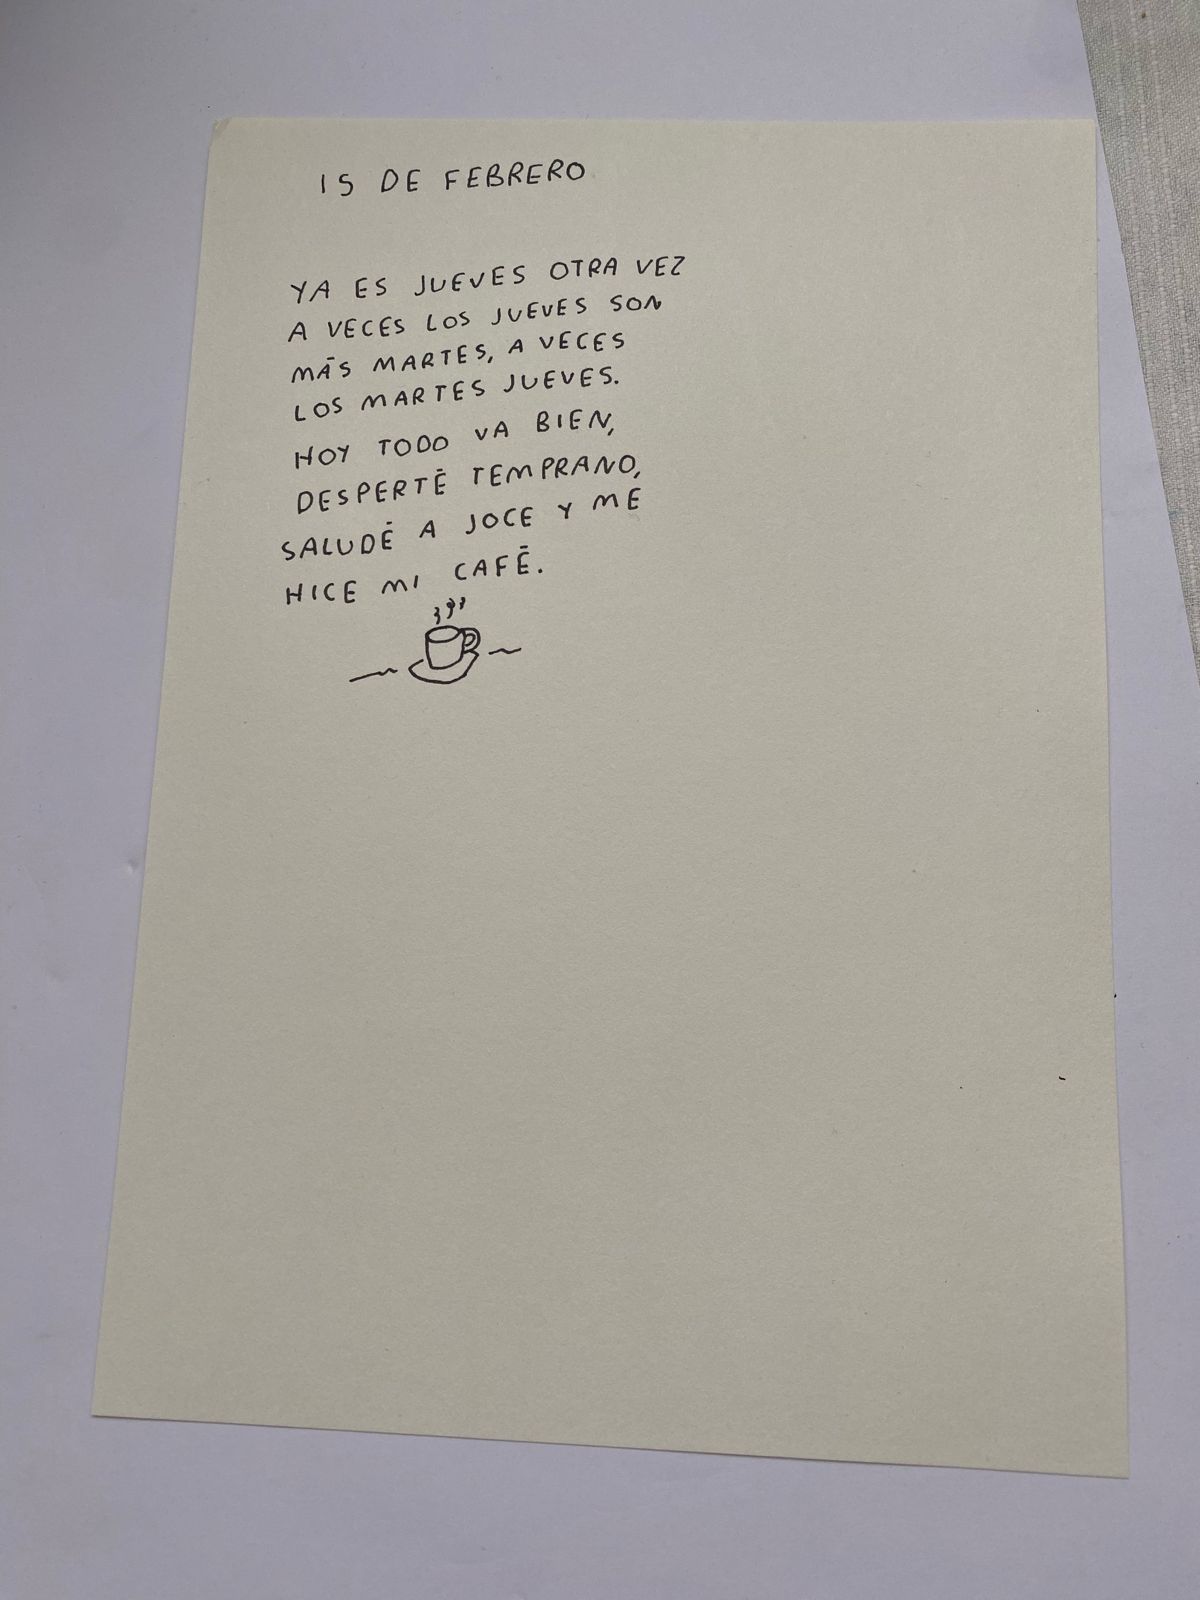 15 DE FEBRERO
YA ES JUEVES OTRA VEZ
A VECES LOS JUEVES SON
MÁS MARTES, A VECES
LOS MARTES JUEVES.
HOY TODO VA BIEN,
DESPERTÉ TEMPRANO,
SALUDÉ A JOCE Y ME
HICE MI CAFÉ.